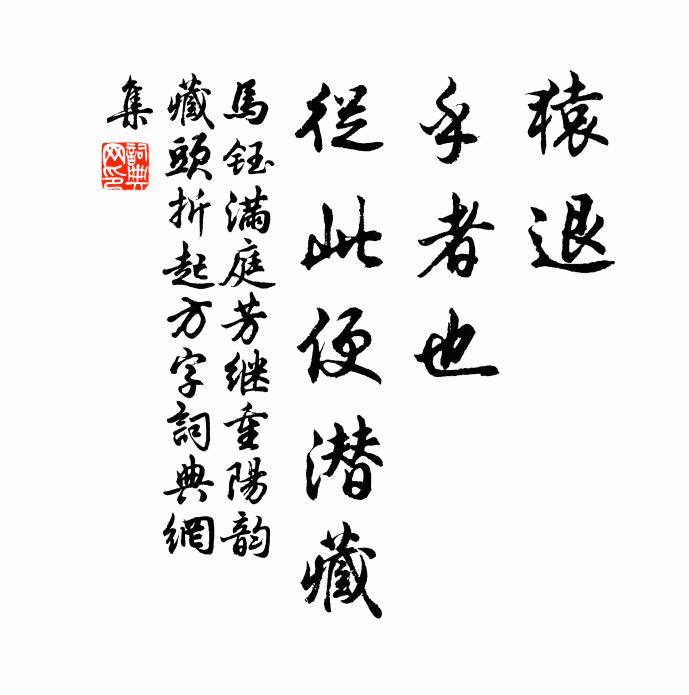 猿退
乎者也
從此便潛藏
馬鈺滿庭芳繼重陽韵
藏頭折起方字詞典網
集
詞典
网印